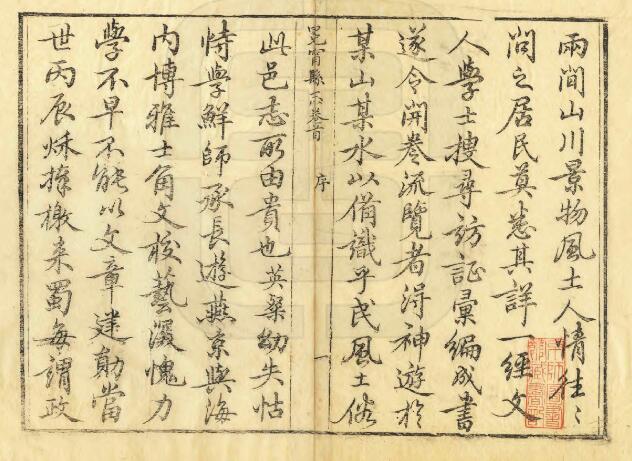 兩間山川景物風土人情往〻
問之居民莫悉其詳一經文
人學士搜尋訪証彙編成書
遂令開卷流覽者得神遊於
某山某水以備識乎民風土俗
冕甯縣志卷首 序 一
此邑志所由貴也英粲幼失怙
恃學鮮師承長遊燕京與海
内博雅士角文校藝深愧力
學不早不能以文章建勛當
世丙辰秋捧檄來蜀每謂政